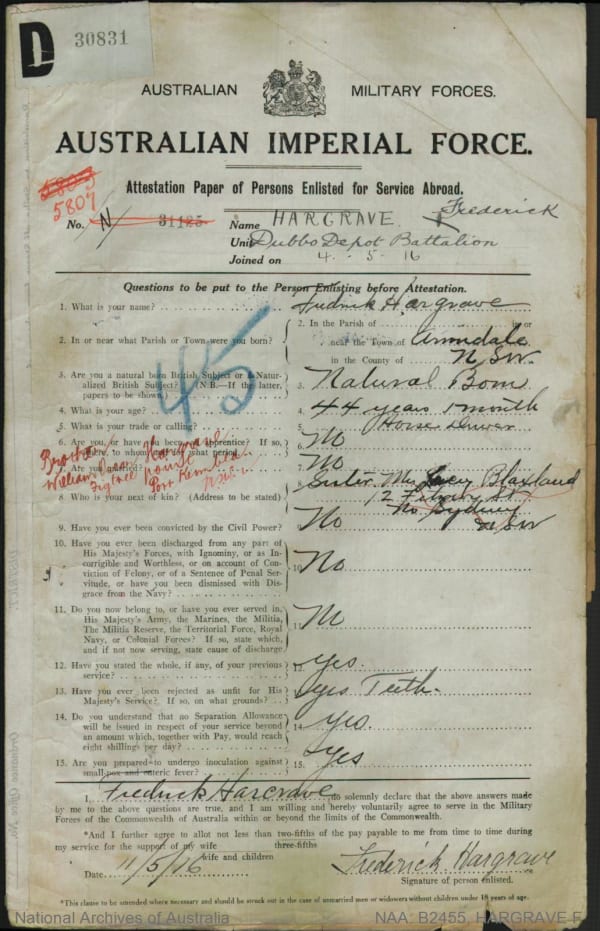 D 30831
AUSTRALIAN MILITARY FORCES.
AUSTRALIAN IMPERIAL FORCE.
Attestation Paper of Persons Enlisted for Service Abroad.
5807
No. N/ 31125 Name HARGRAVE Frederick
Unit Dubbo Depot Battalion
Joined on 4-5-16
Questions to be put to the Person Enlisting before Attestation.
1. What is your name? Fredrick Hargrave
2. In or near what Parish or Town were you born? 2. In the Parish of or
near the Town of Annidale
in the County of N SW.
3. Are you a natural born British Subject or a Natur-
alized British Subject? (N.B.—If the latter,
papers to be shown) 3. Natural Born
4. What is your age? 4. 44 years 1 month
5. What is your trade or calling? 5. Horse Driver
6. Are you, or have you been, an apprentice? If so,
where, to whom, and for what period? 6. No
7. Are you married? 7. No
Brother
William Owen Hargrave
Figtree
Port Kembla
N.S.W.
8. Who is your next of kin? (Address to be stated) 8. Sister Mrs Lucy Blaxland
12 St.
No Sydney
N SW
9. Have you ever been convicted by the Civil Power? No
10. Have you ever been discharged from any part of
His Majesty's Forces, with Ignominy, or as In-
corrigible and Worthless, or on account of Con-
viction of Felony, or of a Sentence of Penal Ser-
vitude, or have you been dismissed with Dis-
grace from the Navy? 10. No
11. Do you now belong to, or have you ever served in,
His Majesty's Army, the Marines, the Militia,
The Militia Reserve, the Territorial Force, Royal
Navy, or Colonial Forces? If so, state which,
and if not now serving, state cause of discharge 11. No
12. Have you stated the whole, if any, of your previous
service? 12. yes.
13. Have you ever been rejected as unfit for His
Majesty's Service? If so, on what grounds? 13. yes Teeth.
14. Do you understand that no Separation Allowance
will be issued in respect of your service beyond
an amount which, together with Pay, would reach
eight shillings per day? 14. yes.
15. Are you prepared to undergo inoculation against
small-pox and enteric fever? 15. yes
45
I, Fredrick Hargrave do solemnly declare that the above answers made
by me to the above questions are true, and I am willing and hereby voluntarily agree to serve in the Military
Forces of the Commonwealth of Australia within or beyond the limits of the Commonwealth.
*And I further agree to allot not less than two-fifths of the pay payable to me from time to time during
three-fifths
my service for the support of my wife
wife and children
Date 11/5/16 Frederick Hargrave
Signature of person enlisted.
*This clause to be amended where necessary and should be struck out in the case of unmarried men or widowers without children under 18 years of age.
National Archives of Australia NAA: B2455, HARGRAVE F